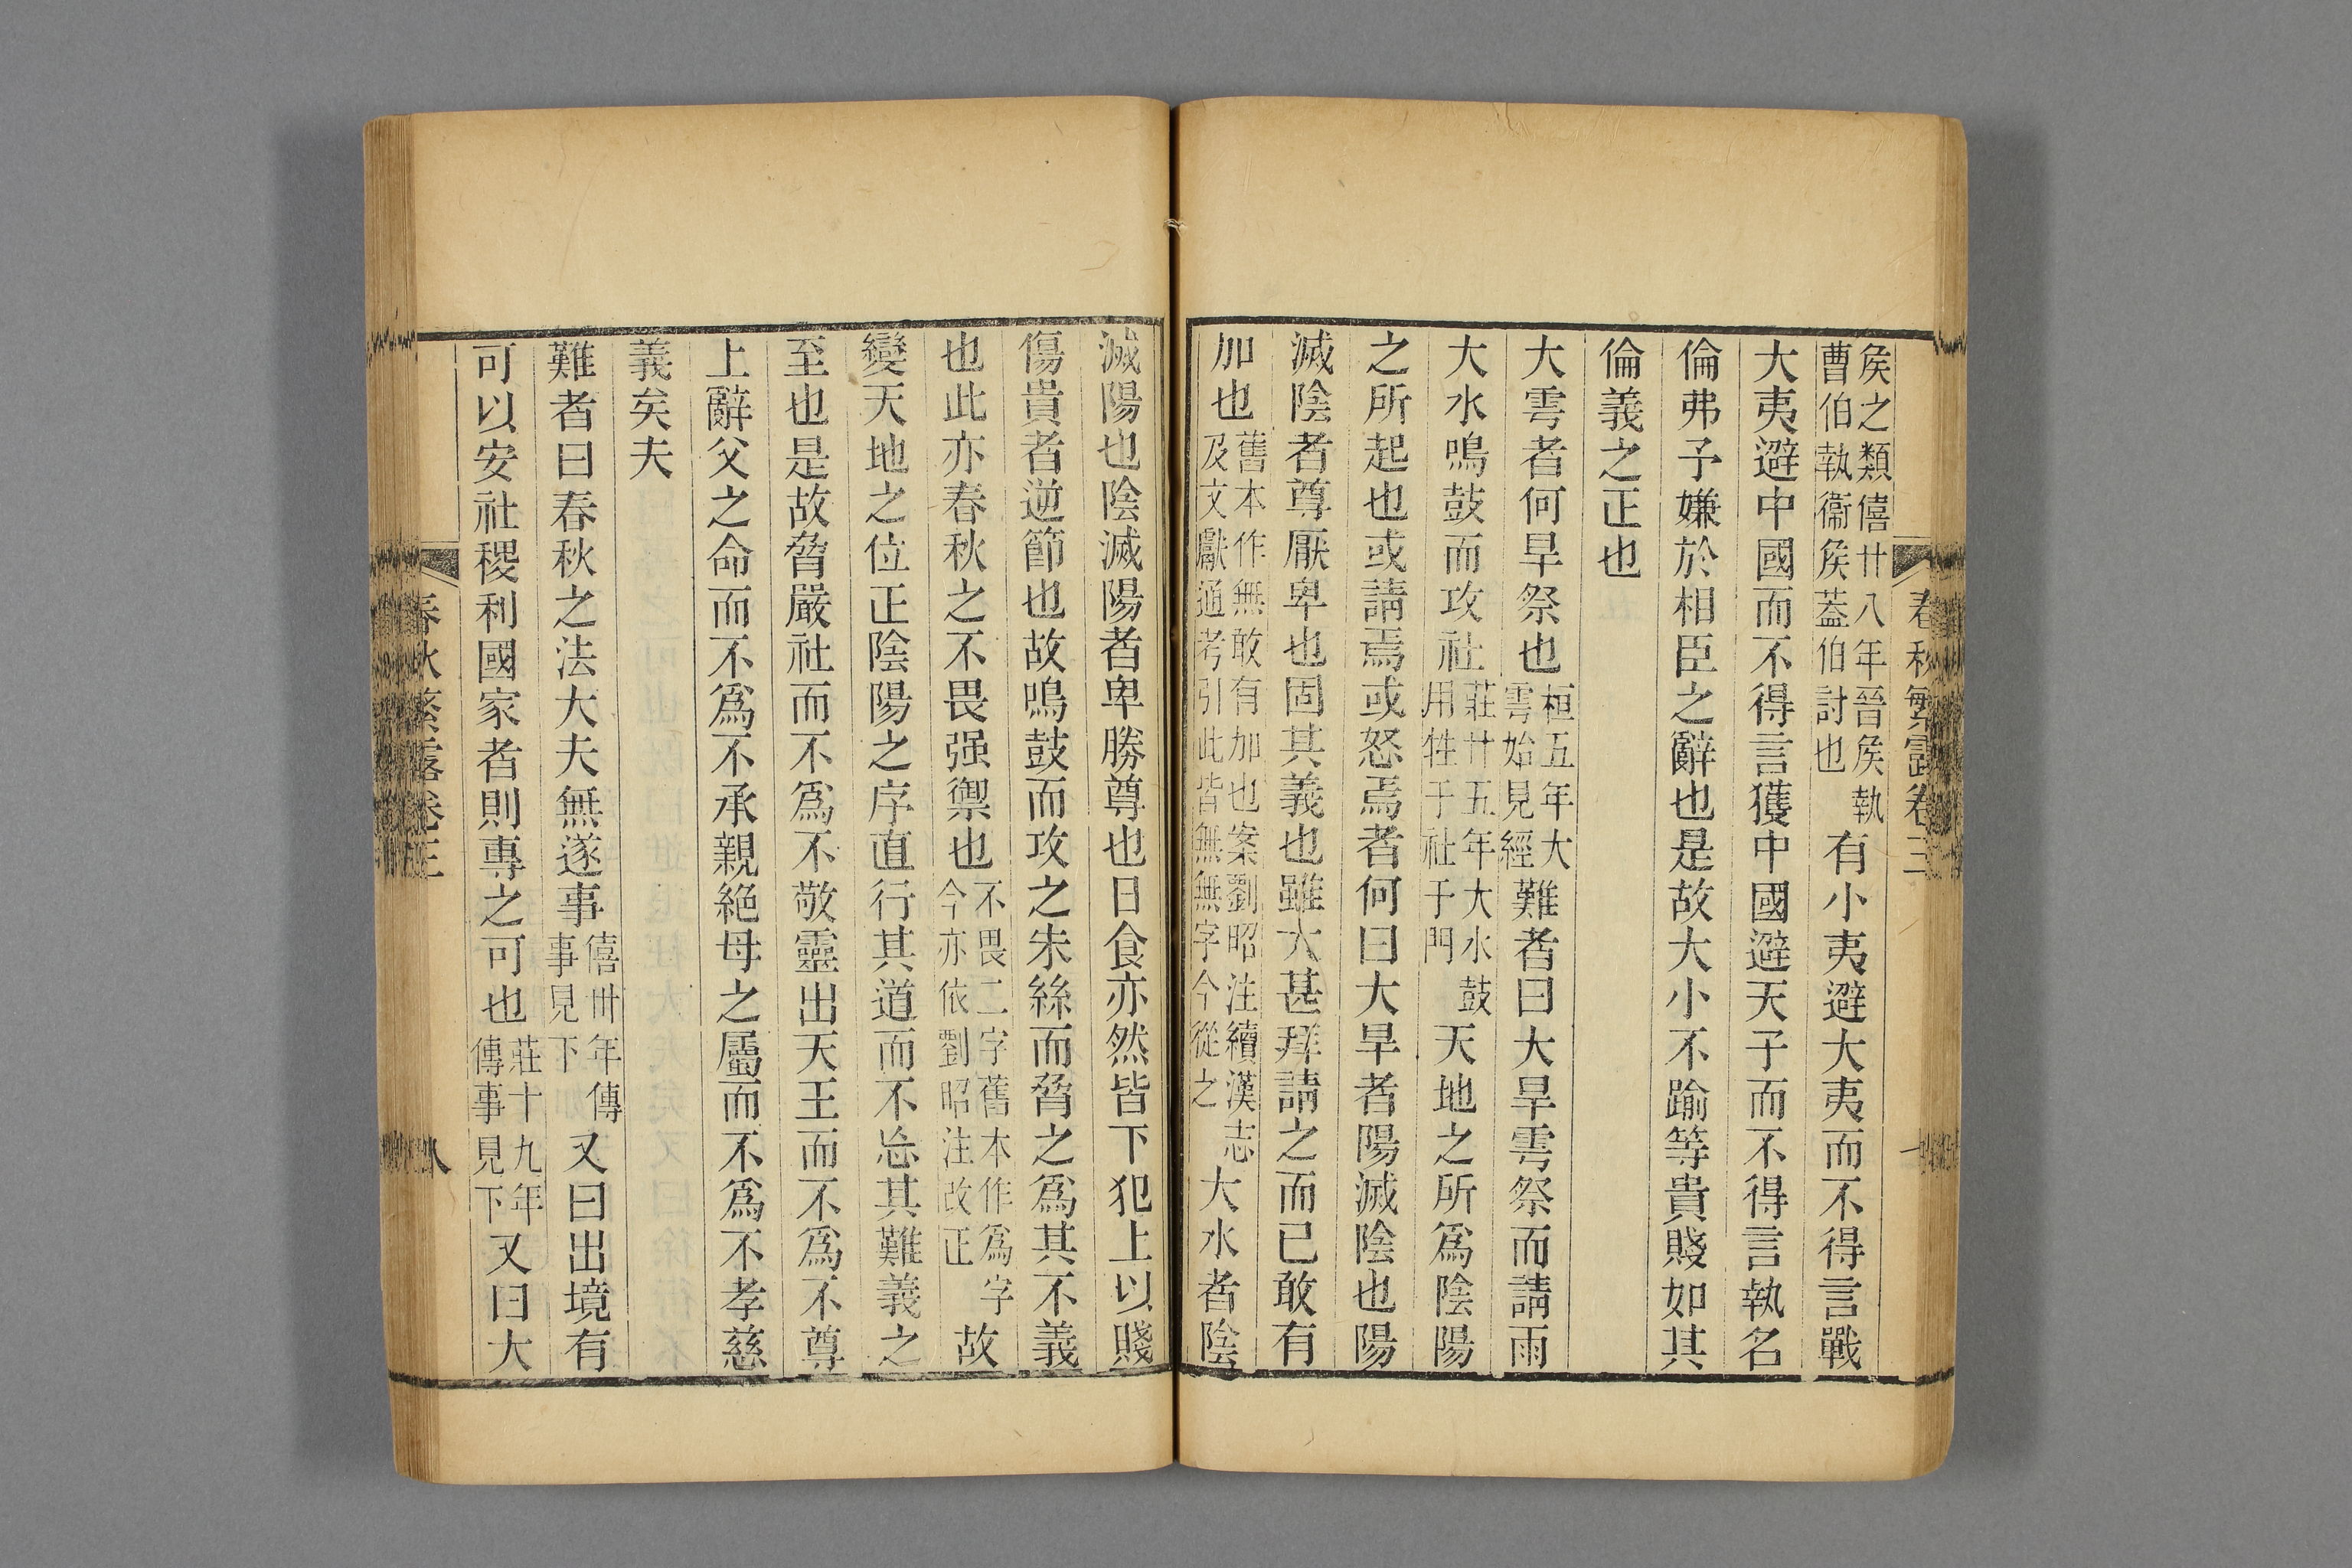 春秋繁露卷三
矦之類僖廿八年晉矦執
曹伯執衞矦葢伯討也
有小夷避大夷而不得言戰
大夷避中國而不得言獲中國避天子而不得言執名
倫弗予嫌於相臣之辭也是故大小不踰等貴賤如其
倫義之正也
大雩者何旱祭也
桓五年大
雩始見經
難者曰大旱雩祭而請雨
大水鳴鼓而攻社
莊廿五年大水鼓
用牲于社于門
天地之所爲陰陽
之所起也或請焉或怒焉者何曰大旱者陽滅陰也陽
滅陰者尊厭卑也固其義也雖大甚拜請之而已敢有
加也
舊本作無敢有加也案劉昭注續漢志
及文獻通考引此皆無無字今從之
大水者陰
滅陽也陰滅陽者卑勝尊也日食亦然皆下犯上以賤
傷貴者逆節也故鳴鼓而攻之朱絲而脅之爲其不義
也此亦春秋之不畏强禦也
不畏二字舊本作爲字
今亦依劉昭注改正
故
變天地之位正陰陽之序直行其道而不忘其難義之
至也是故脅嚴社而不爲不敬靈出天王而不爲不尊
上辭父之命而不爲不承親絶母之屬而不爲不孝慈
義矣夫
難者曰春秋之法大夫無遂事
僖卅年傳
事見下
又曰出境有
可以安社稷利國家者則專之可也
莊十九年
傳事見下
又曰大
春秋繁露卷三
八